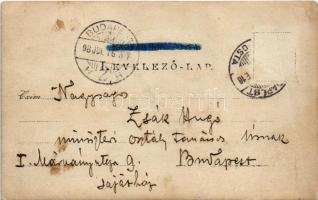 BUDAPEST
LEVELEZŐ-LAP.
Czim Nagyságos
Zsák Hugó
miniszteri osztály tanácsos Úrnak
I. Márvány utcza 9. Budapest
saját ház